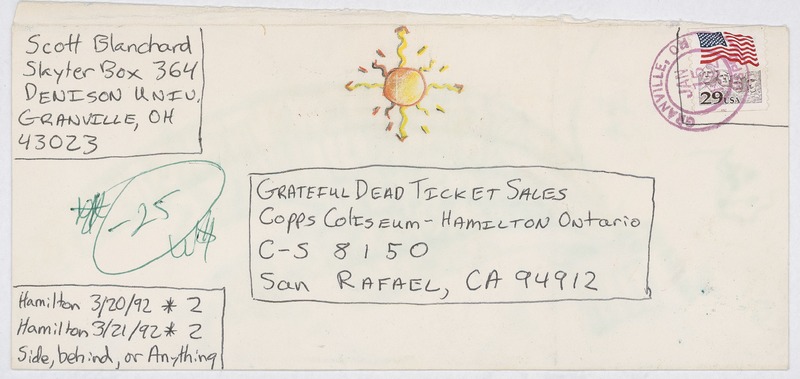 Scott Blanchard
Skyter Box 364
DENISON UNIV.
GRANVILLE, OH
43023
GRANVILLE, OH
JAN
29USA
-25
GRATEFUL DEAD TICKET SALES
Copps Coliseum - HAMILTON Ontario
C-S 8150
San RAFAEL, CA 94912
Hamilton 3/20/92 * 2
Hamilton 3/21/92 * 2
Side, behind, or Anything